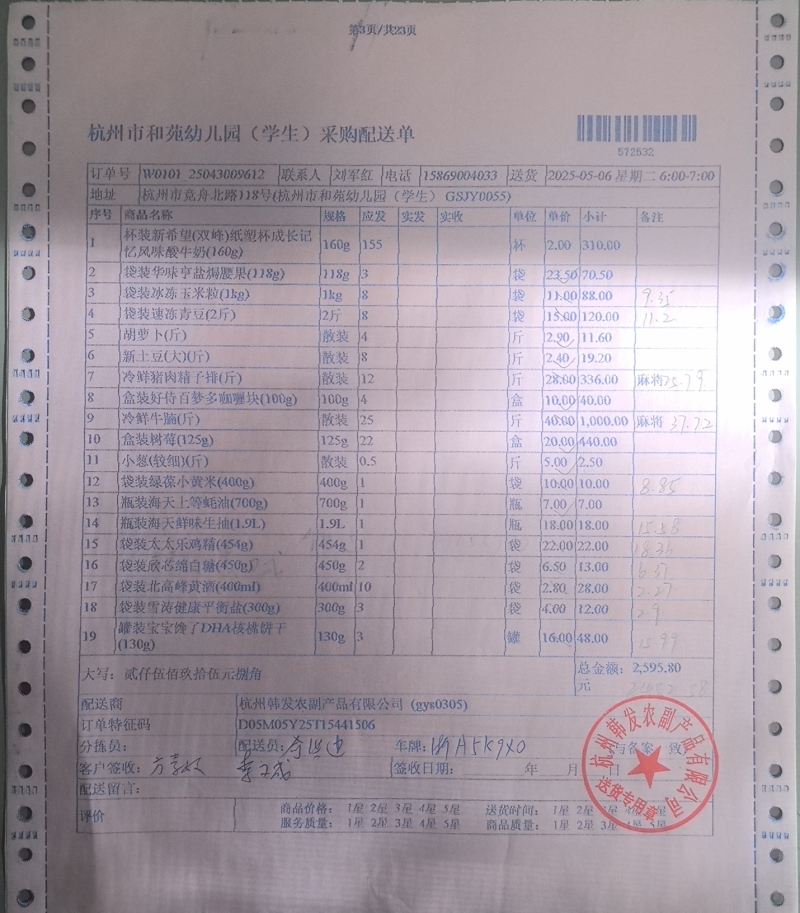 第3页/共23页
杭州市和苑幼儿园（学生）采购配送单
572632
订单号 W0101 25043009612 联系人 刘军红 电话 15869004033 送货 2025-05-06 星期二 6:00-7:00
地址 杭州市竞舟北路118号(杭州市和苑幼儿园（学生）GSJY0055)
序号 商品名称 规格 应发 实发 实收 单位 单价 小计 备注
1 杯装新希望(双峰)纸塑杯成长记忆风味酸牛奶(160g) 160g 155 杯 2.00 310.00
2 袋装华味亨盐焗腰果(118g) 118g 3 袋 23.50 70.50
3 袋装冰冻玉米粒(1kg) 1kg 8 袋 11.00 88.00 9.35
4 袋装速冻青豆(2斤) 2斤 8 袋 15.00 120.00 11.2
5 胡萝卜(斤) 散装 4 斤 2.90 11.60
6 新土豆(大)(斤) 散装 8 斤 2.40 19.20
7 冷鲜猪肉精子排(斤) 散装 12 斤 28.00 336.00 麻将 25.79
8 盒装好侍百梦多咖喱块(100g) 100g 4 盒 10.00 40.00
9 冷鲜牛腩(斤) 散装 25 斤 40.00 1,000.00 麻将 37.72
10 盒装树莓(125g) 125g 22 盒 20.00 440.00
11 小葱(较细)(斤) 散装 0.5 斤 5.00 2.50
12 袋装绿葆小黄米(400g) 400g 1 袋 10.00 10.00 8.85
13 瓶装海天上等蚝油(700g) 700g 1 瓶 7.00 7.00
14 瓶装海天鲜味生抽(1.9L) 1.9L 1 瓶 18.00 18.00 15.58
15 袋装太太乐鸡精(454g) 454g 1 袋 22.00 22.00
16 袋装欣芯绵白糖(450g) 450g 2 袋 6.50 13.00 6.37
17 袋装北高峰黄酒(400ml) 400ml 10 袋 2.80 28.00 2.27
18 袋装雪涛健康平衡盐(300g) 300g 3 袋 4.00 12.00 2.9
19 罐装宝宝馋了DHA核桃饼干(130g) 130g 3 罐 16.00 48.00 15.99
大写：贰仟伍佰玖拾伍元捌角 总金额：2,595.80元
配送商 杭州韩发农副产品有限公司（gys0305)
订单特征码 D05M05Y25T15441506
分拣员： 配送员： 车牌：浙A5K9X0 与备案一致
客户签收： 签收日期： 年 月 日
配送留言：
评价 商品价格： 1星 2星 3星 4星 5星 送货时间： 1星 2星 3星 4星 5星
服务质量： 1星 2星 3星 4星 5星 商品质量： 1星 2星 3星 4星 5星
杭州韩发农副产品有限公司
送货专用章